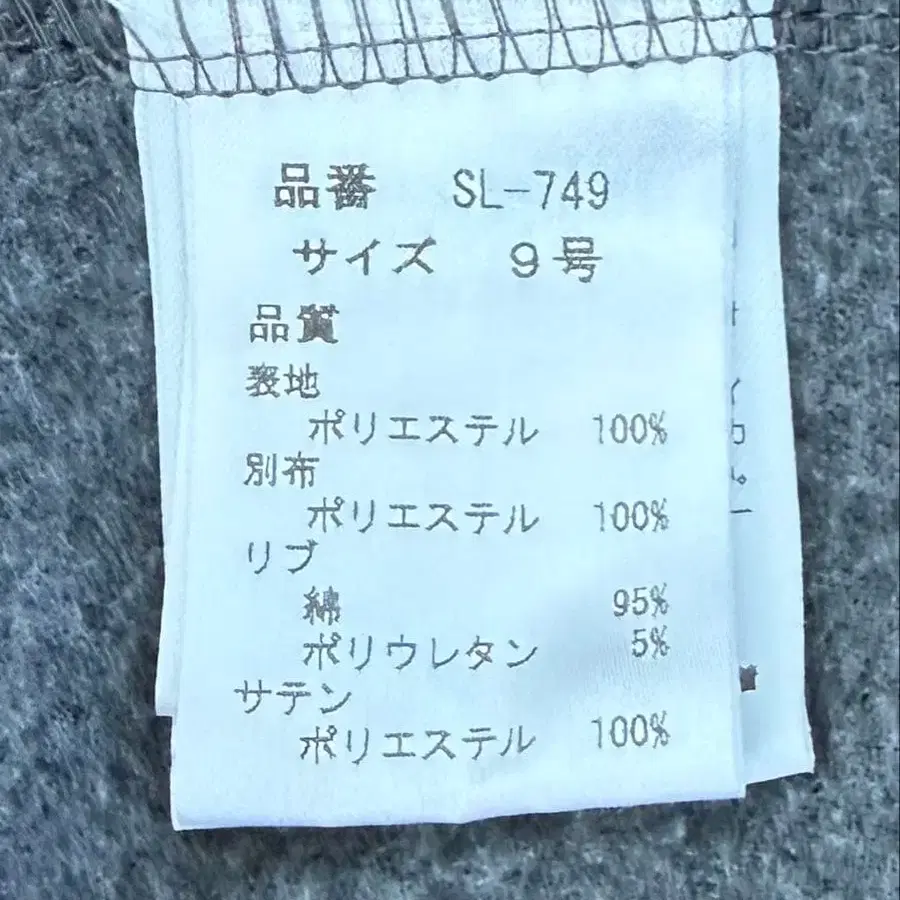 品番 SL-749
サイズ 9号
品質
表地
ポリエステル 100%
別布
ポリエステル 100%
リブ
綿 95%
ポリウレタン 5%
サテン
ポリエステル 100%